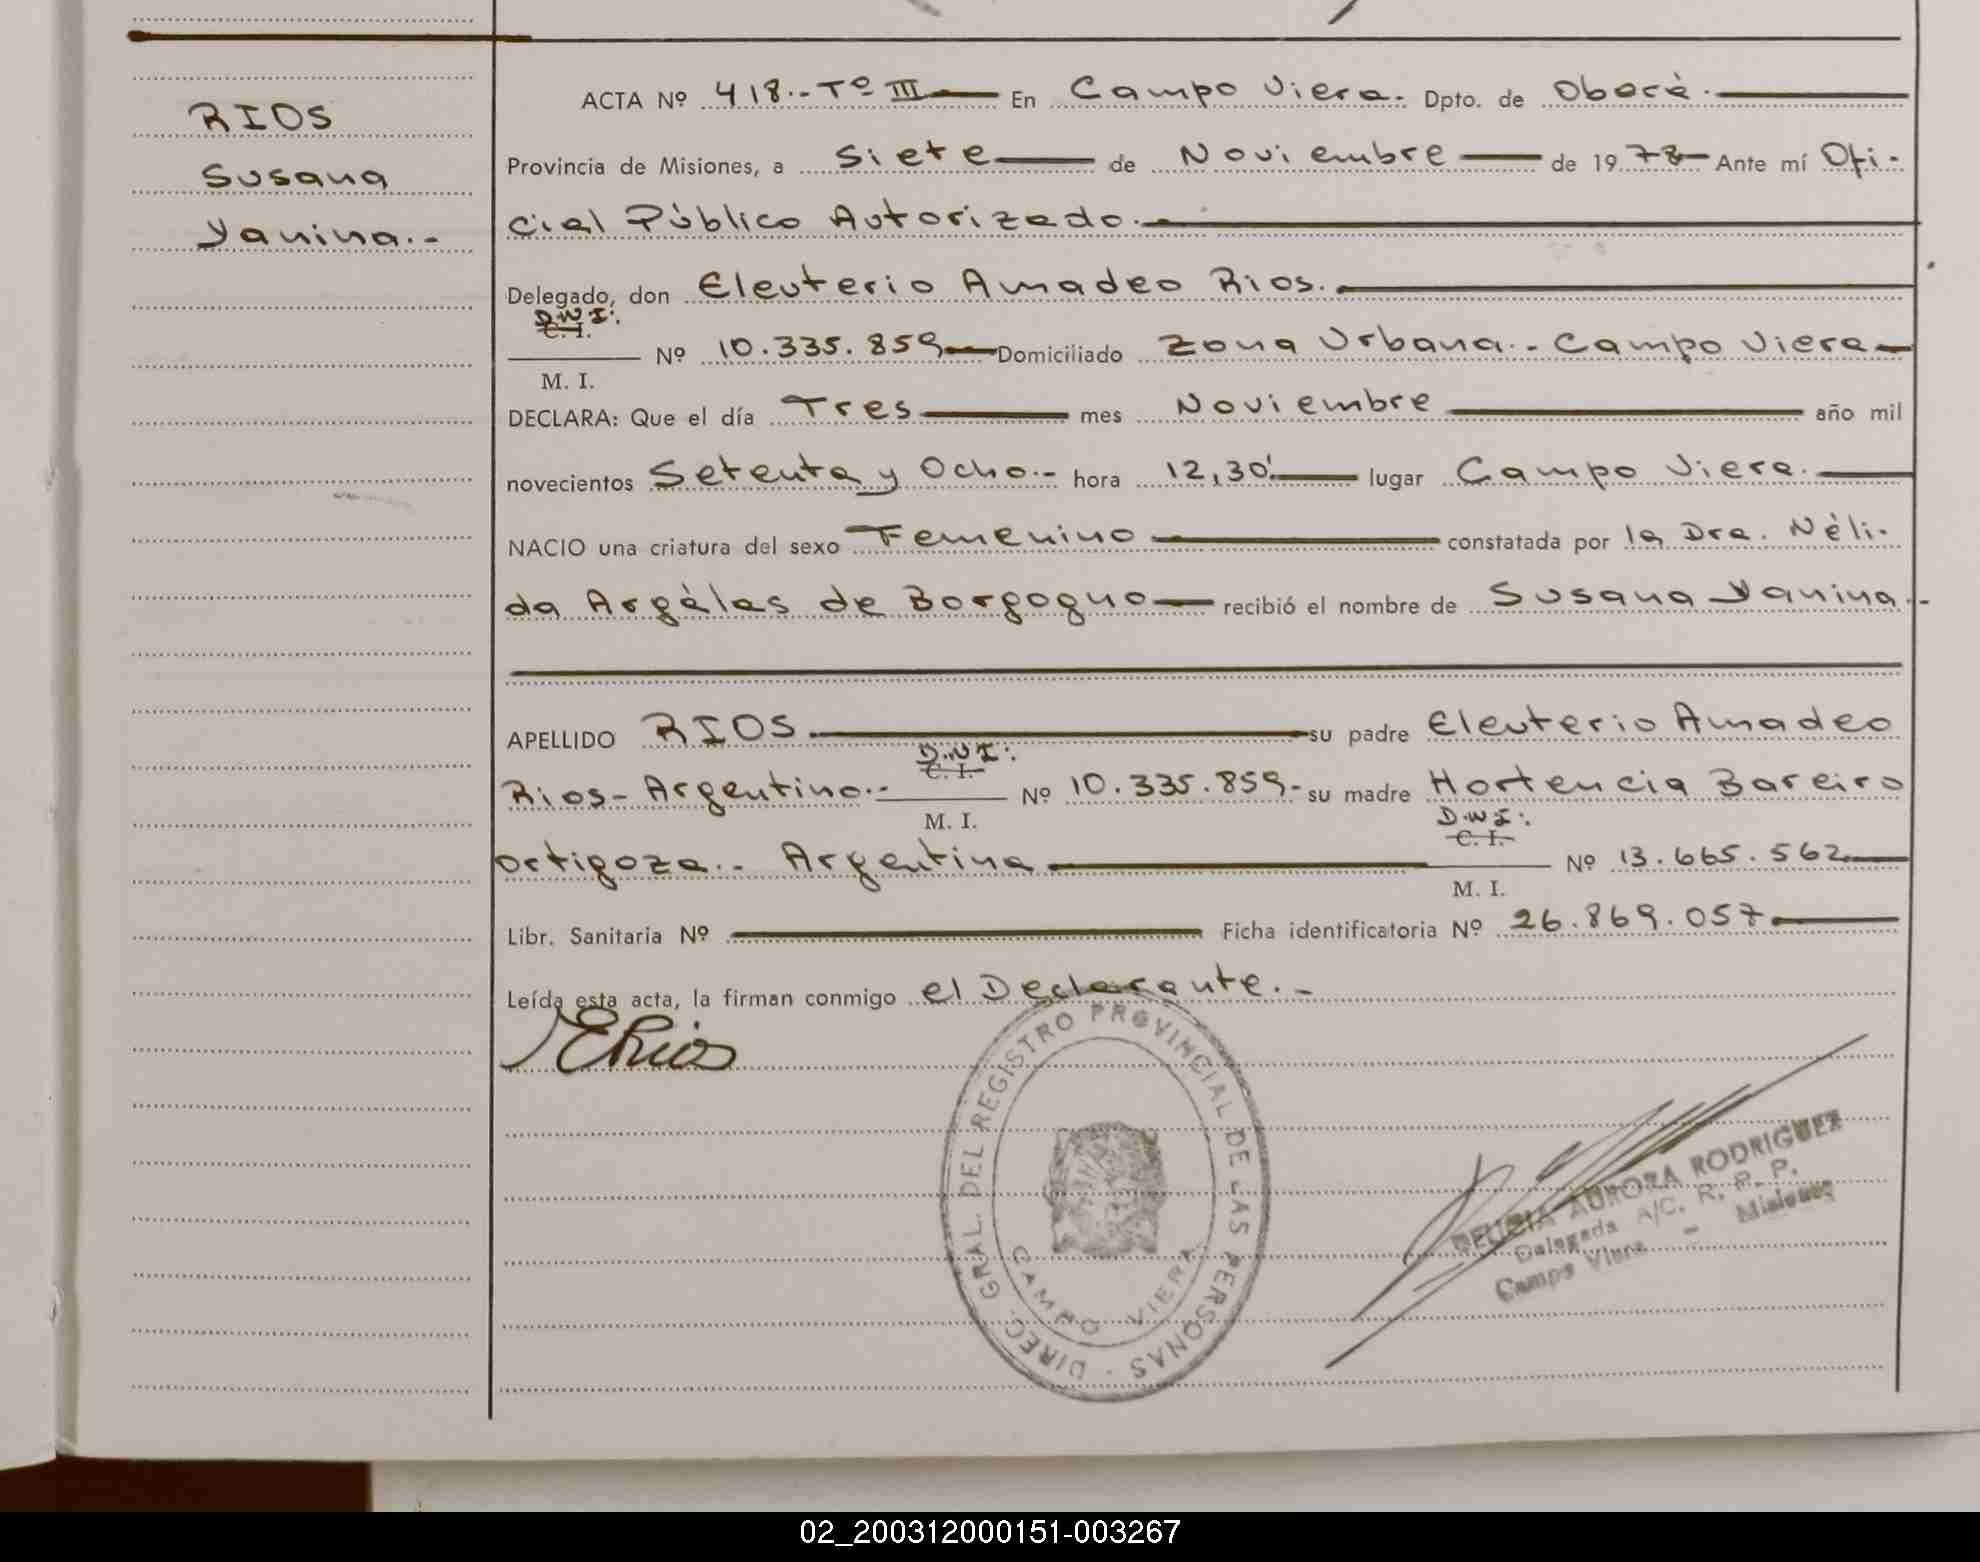 RIOS
Susana
Yanina.-
ACTA Nº 418.- Tº III En Campo Viera. Dpto. de Oberá.
Provincia de Misiones, a Siete de Noviembre de 1978 Ante mí Ofi-
cial Público Autorizado.-
Delegado, don Eleuterio Amadeo Rios.
D.N.I:
C. I.
Nº 10.335.859 Domiciliado Zona Urbana.- Campo Viera
M. I.
DECLARA: Que el día Tres mes Noviembre año mil
novecientos Setenta y Ocho.- hora 12,30' lugar Campo Viera.
NACIO una criatura del sexo Femenino constatada por la Dra. Néli-
da Argélas de Borgogno recibió el nombre de Susana Yanina.-
APELLIDO RIOS su padre Eleuterio Amadeo
D.N.I:
C. I.
Rios - Argentino.- Nº 10.335.859.- su madre Hortencia Bareiro
M. I.
D.N.I:
C. I.
Ortigoza.- Argentina Nº 13.665.562
M. I.
Libr. Sanitaria Nº Ficha identificatoria Nº 26.869.057
Leída esta acta, la firman conmigo el Declarante.-
ERios
DIREC. GRAL. DEL REGISTRO PROVINCIAL DE LAS PERSONAS -
CAMPO VIERA
DELICIA AURORA RODRIGUEZ
Delegada A/C. R. P. P.
Campo Viera - Misiones
02_200312000151-003267